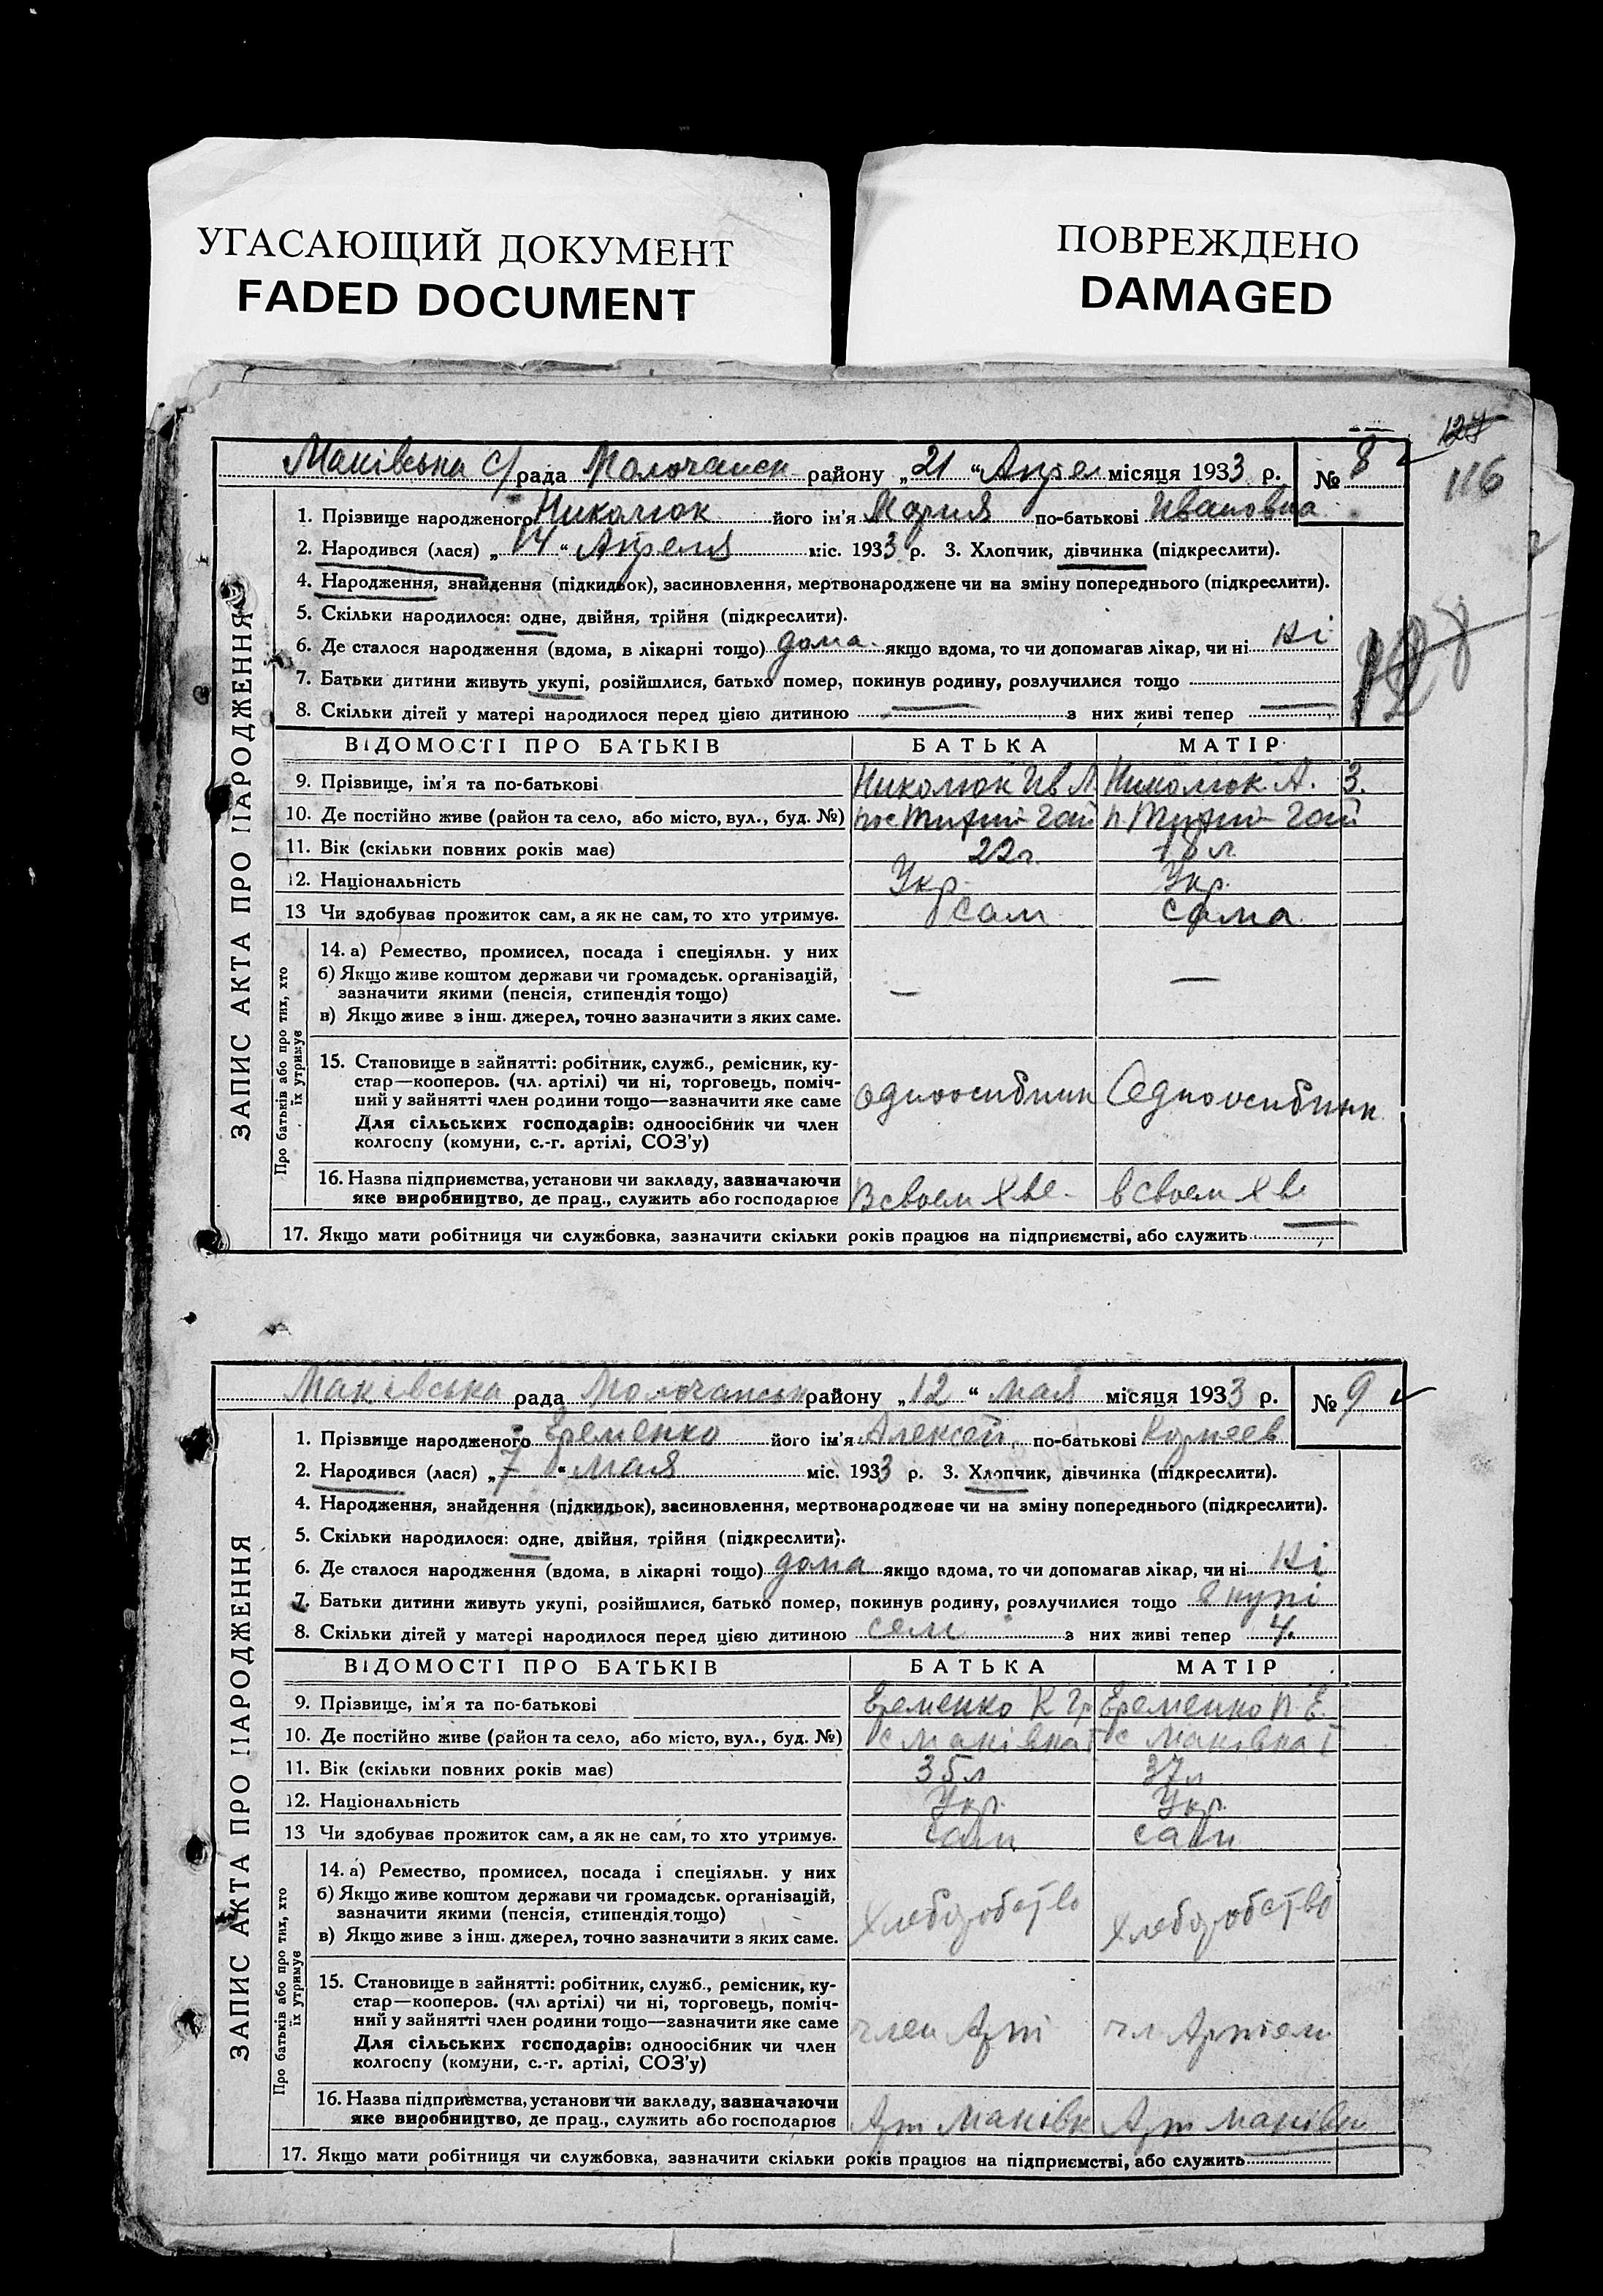 УГАСАЮЩИЙ ДОКУМЕНТ
FADED DOCUMENT
ПОВРЕЖДЕНО
DAMAGED
127
116
Маківська с/рада Молочанск району „21“ Апрел місяця 1933 р. № 8
1. Прізвище народженого Николюк його ім'я Мария по-батькові Ивановна
2. Народився (лася) „14“ Апреля міс. 1933 р. 3. Хлопчик, дівчинка (підкреслити).
4. Народження, знайдення (підкидьок), засиновлення, мертвонароджене чи на зміну попереднього (підкреслити).
5. Скільки народилося: одне, двійня, трійня (підкреслити).
6. Де сталося народження (вдома, в лікарні тощо) дома якщо вдома, то чи допомагав лікар, чи ні Ні
7. Батьки дитини живуть укупі, розійшлися, батько помер, покинув родину, розлучилися тощо
8. Скільки дітей у матері народилося перед цією дитиною — з них живі тепер —
ВІДОМОСТІ ПРО БАТЬКІВ БАТЬКА МАТІР
9. Прізвище, ім'я та по-батькові Николюк Ив Л Николюк А. З.
10. Де постійно живе (район та село, або місто, вул., буд. №) пос Тихий Гай п. Тихий Гай
11. Вік (скільки повних років має) 22 г. 18 л
12. Національність Укр. Укр.
13 Чи здобував прожиток сам, а як не сам, то хто утримує. сам сама
14. а) Ремество, промисел, посада і спеціяльн. у них
б) Якщо живе коштом держави чи громадськ. організацій,
зазначити якими (пенсія, стипендія тощо) — —
в) Якщо живе з інш. джерел, точно зазначити з яких саме.
15. Становище в зайнятті: робітник, служб., ремісник, ку-
стар—кооперов. (чл. артілі) чи ні, торговець, поміч-
ний у зайнятті член родини тощо—зазначити яке саме одноосибник Одноосибник
Для сільських господарів: одноосібник чи член
колгоспу (комуни, с.-г. артілі, СОЗ'у)
16. Назва підприємства, установи чи закладу, зазначаючи
яке виробництво, де прац., служить або господарює В своем хве. в своем хве
17. Якщо мати робітниця чи службовка, зазначити скільки років працює на підприємстві, або служить —
ЗАПИС АКТА ПРО НАРОДЖЕННЯ
Про батьків або про тих, хто
їх утримує
Маківська рада Молочанськ району „12“ мая місяця 1933 р. № 9
1. Прізвище народженого Еременко його ім'я Алексей по-батькові Корнеев
2. Народився (лася) „7“ мая міс. 1933 р. 3. Хлопчик, дівчинка (підкреслити).
4. Народження, знайдення (підкидьок), засиновлення, мертвонароджене чи на зміну попереднього (підкреслити).
5. Скільки народилося: одне, двійня, трійня (підкреслити).
6. Де сталося народження (вдома, в лікарні тощо) дома якщо вдома, то чи допомагав лікар, чи ні Ні
7. Батьки дитини живуть укупі, розійшлися, батько помер, покинув родину, розлучилися тощо вкупі
8. Скільки дітей у матері народилося перед цією дитиною сем з них живі тепер 4.
ВІДОМОСТІ ПРО БАТЬКІВ БАТЬКА МАТІР
9. Прізвище, ім'я та по-батькові Еременко К Гр Еременко П. Е.
10. Де постійно живе (район та село, або місто, вул., буд. №) с Маківка I с Маківка I
11. Вік (скільки повних років має) 35 л 37 л
12. Національність Укр. Укр.
13 Чи здобував прожиток сам, а як не сам, то хто утримує. сам сам
14. а) Ремество, промисел, посада і спеціяльн. у них
б) Якщо живе коштом держави чи громадськ. організацій,
зазначити якими (пенсія, стипендія тощо) Хлеборобство Хлеборобство
в) Якщо живе з інш. джерел, точно зазначити з яких саме.
15. Становище в зайнятті: робітник, служб., ремісник, ку-
стар—кооперов. (чл. артілі) чи ні, торговець, поміч-
ний у зайнятті член родини тощо—зазначити яке саме член Арті чл Артели
Для сільських господарів: одноосібник чи член
колгоспу (комуни, с.-г. артілі, СОЗ'у)
16. Назва підприємства, установи чи закладу, зазначаючи
яке виробництво, де прац., служить або господарює Арт Маківк Арт Маківк
17. Якщо мати робітниця чи службовка, зазначити скільки років працює на підприємстві, або служить
ЗАПИС АКТА ПРО НАРОДЖЕННЯ
Про батьків або про тих, хто
їх утримує